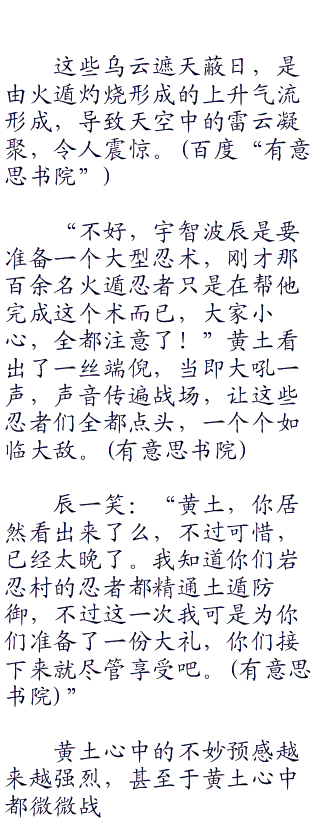 这些乌云遮天蔽日，是
由火遁灼烧形成的上升气流
形成，导致天空中的雷云凝
聚，令人震惊。(百度“有意
思书院”)
“不好，宇智波辰是要
准备一个大型忍术，刚才那
百余名火遁忍者只是在帮他
完成这个术而已，大家小
心，全都注意了！”黄土看
出了一丝端倪，当即大吼一
声，声音传遍战场，让这些
忍者们全都点头，一个个如
临大敌。(有意思书院)
辰一笑：“黄土，你居
然看出来了么，不过可惜，
已经太晚了。我知道你们岩
忍村的忍者都精通土遁防
御，不过这一次我可是为你
们准备了一份大礼，你们接
下来就尽管享受吧。(有意思
书院)”
黄土心中的不妙预感越
来越强烈，甚至于黄土心中
都微微战